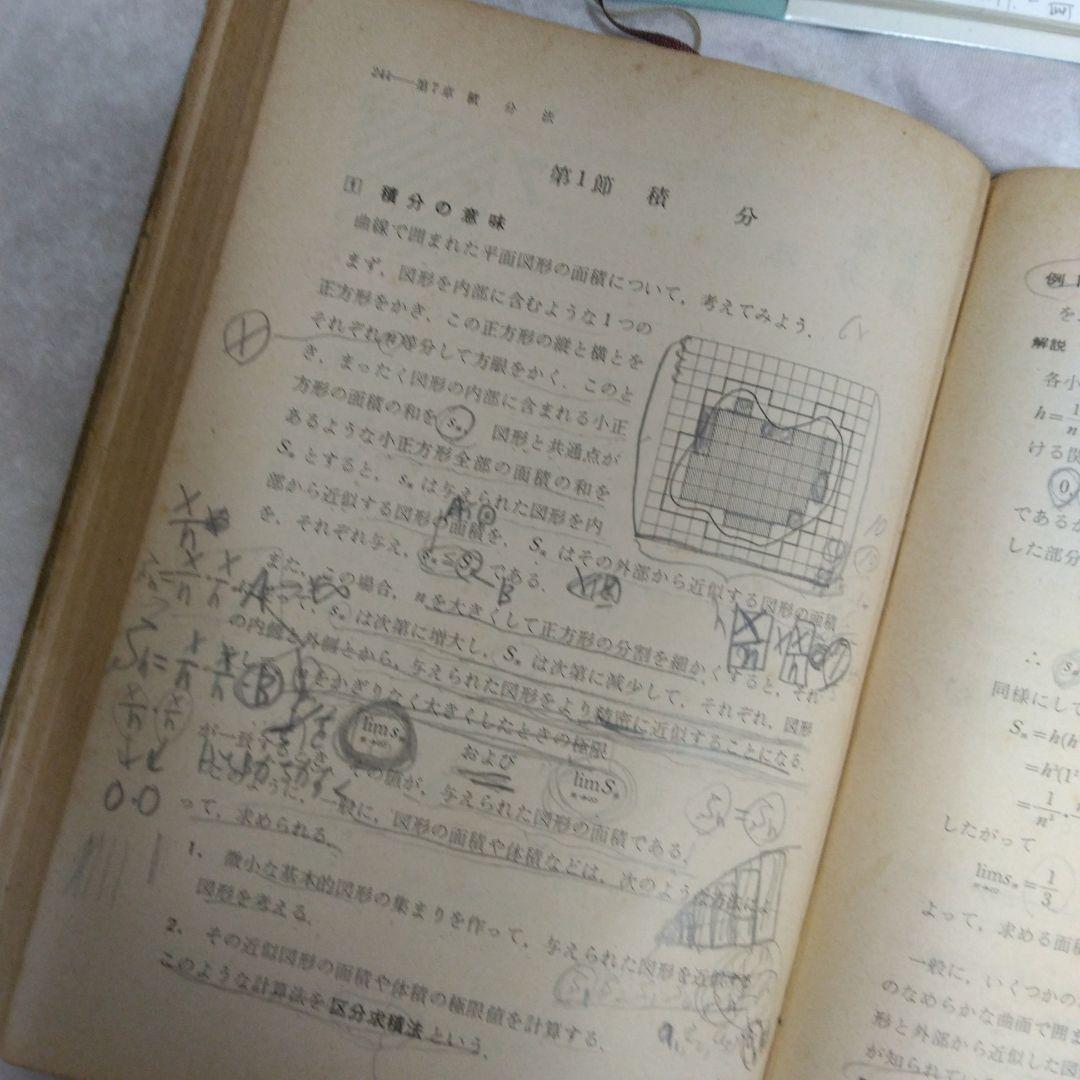 244——第7章 積 分 法
第1節 積 分
1 積分の意味
曲線で囲まれた平面図形の面積について，考えてみよう．
まず，図形を内部に含むような1つの
正方形をかき，この正方形の縦と横とを
それぞれn等分して方眼をかく．このと
き，まったく図形の内部に含まれる小正
方形の面積の和を sₙ 図形と共通点が
あるような小正方形全部の面積の和を
Sₙ とすると，sₙ は与えられた図形を内
部から近似する図形の面積を，Sₙ はその外部から近似する図形の面積
を，それぞれ与え，sₙ≦Sₙ である．
また，この場合，nを大きくして正方形の分割を細かくすると，それ
sₙ は次第に増大し，Sₙ は次第に減少して，それぞれ，図形
の内側と外側とから，与えられた図形をより精密に近似することになる．
をかぎりなく大きくしたときの極限
lim sₙ および lim Sₙ
n→∞ n→∞
が一致するとき，その値が，与えられた図形の面積である．
このように，一般に，図形の面積や体積などは，次のような方法によ
って，求められる．
1. 微小な基本的図形の集まりを作って，与えられた図形を近似する
図形を考える．
2. その近似図形の面積や体積の極限値を計算する．
このような計算法を区分求積法という．
x/n
Sₙ=
0.0
Sₙ=Sₙ
例
を
解説
各小
h=1/n
ける関
0,
であるか
した部分
∴
同様にして
Sₙ=h(h
=h³(1²
=1/n³・
したがって
lim sₙ=1/3
n→∞
よって，求める面積
一般に，いくつかの
のなめらかな曲面で囲ま
形と外部から近似した図
が知られてい